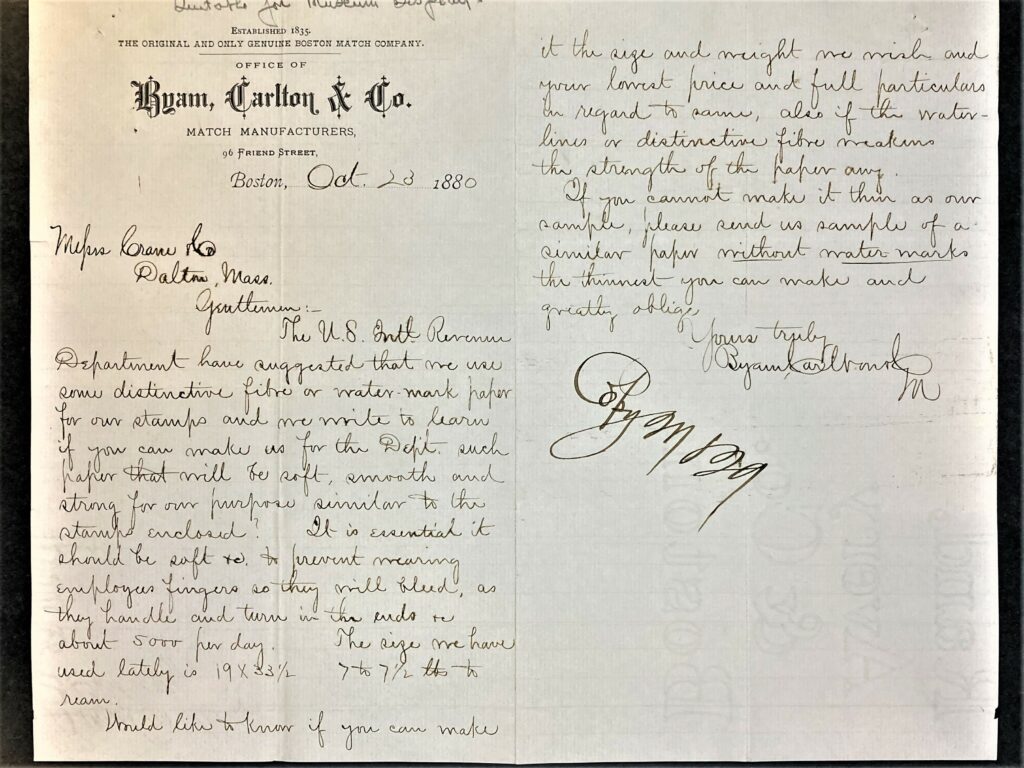 Suitable for Museum Display.
ESTABLISHED 1835.
THE ORIGINAL AND ONLY GENUINE BOSTON MATCH COMPANY.
OFFICE OF
Byam, Carlton & Co.
MATCH MANUFACTURERS,
96 FRIEND STREET,
Boston, Oct. 23 1880
Messrs Crane & Co
Dalton, Mass.
Gentlemen:-
The U.S. Intl. Revenue
Department have suggested that we use
some distinctive fibre or water-mark paper
for our stamps and we write to learn
if you can make us for the Dept. such
paper that will be soft, smooth and
strong for our purpose similar to the
stamps enclosed? It is essential it
should be soft &c. to prevent wearing
employees fingers so they will bleed, as
they handle and turn in the ends &c
about 5000 per day. The size we have
used lately is 19 X 33 1/2 7 to 7 1/2 lbs to
ream.
Would like to know if you can make
it the size and weight we wish and
your lowest price and full particulars
in regard to same, also if the water-
lines or distinctive fibre weakens
the strength of the paper any.
If you cannot make it thin as our
sample, please send us sample of a
similar paper without water-marks
the thinnest you can make and
greatly oblige
Yours truly
Byam Carlton & Co
M